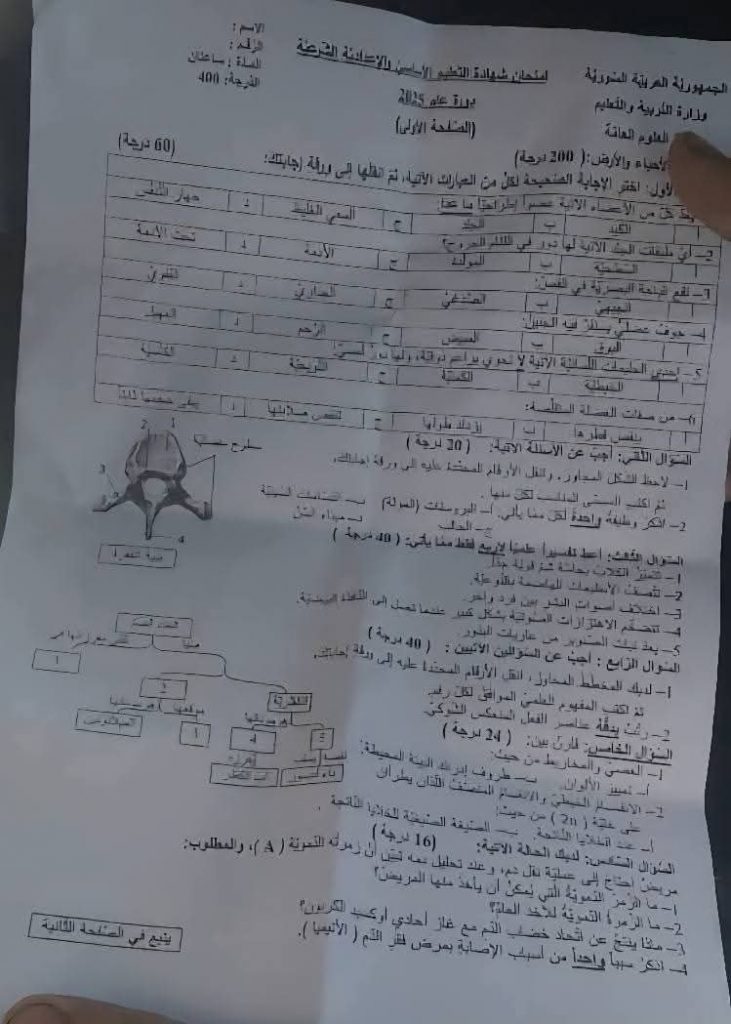 الجمهورية العربية السورية
وزارة التربية والتعليم
العلوم العامة
امتحان شهادة التعليم الأساسي والإعدادية الشرعية
دورة عام 2025
(الصفحة الأولى)
الاسم :
الرقم :
المدة : ساعتان
الدرجة: 400
الأحياء والأرض: ( 200 درجة)
الأول: اختر الإجابة الصحيحة لكل من العبارات الآتية، ثم انقلها إلى ورقة إجابتك: (60 درجة)
كل من الأعضاء الآتية عضو إطراحي ما عدا:
ا الكبد ب الجلد ج المعي الغليظ د جهاز التنفس
2– أي طبقات الجلد الآتية لها دور في التئام الجروح؟
ا السطحية ب المولدة ج الأدمة د تحت الأدمة
3– تقع الباحة البصرية في الفص:
ا الجبهي ب الصدغي ج الجداري د القفوي
4– جوف عضلي يستقر فيه الجنين:
ا البوق ب المبيض ج الرحم د المهبل
5– إحدى الحليمات اللسانية الآتية لا تحوي براعم ذوقية، ولها دور لمسي:
ا الخيطية ب الكمئية ج التويجية د الكأسية
6– من صفات العضلة المتقلصة:
ا ينقص قطرها ب يزداد طولها ج تنقص صلابتها د يبقى حجمها ثابتا
السؤال الثاني: أجب عن الأسئلة الآتية: ( 20 درجة )
1– لاحظ الشكل المجاور، وانقل الأرقام المحددة عليه إلى ورقة إجابتك،
ثم اكتب المسمى المناسب لكل منها.
2– اذكر وظيفة واحدة لكل مما يأتي: أ– البروستات (الموثة)
ج– الحالب د– ميناء السن
1
2
3
4
بنية الفقرة
السؤال الثالث: أعط تفسيراً علمياً لأربع فقط مما يأتي: ( 40 درجة )
1– تتميز الكلاب بحاسة شم قوية جداً.
2– تتصف الأنظيمات الهاضمة بالنوعية.
3– اختلاف أصوات البشر بين فرد وآخر.
4– تتضخم الاهتزازات الصوتية بشكل كبير عندما تصل إلى النافذة البيضية.
5– يعد نبات الصنوبر من عاريات البذور.
السؤال الرابع : أجب عن السؤالين الآتيين : ( 40 درجة )
1– لديك المخطط المجاور، انقل الأرقام المحددة عليه إلى ورقة إجابتك،
ثم اكتب المفهوم العلمي الموافق لكل رقم.
2– رتب بدقة عناصر الفعل المنعكس الشوكي.
الغدد الصم
منها
1
2
الكظرية
3
4
5
السؤال الخامس: قارن بين: ( 24 درجة )
1– العصي والمخاريط من حيث:
أ– تمييز الألوان. ب– ظروف إدراك البيئة المحيطة.
2– الانقسام الخيطي والانقسام المنصف اللذان يطرآن
على خلية ( 2n ) من حيث:
أ– عدد الخلايا الناتجة. ب– الصيغة الصبغية للخلايا الناتجة .
السؤال السادس: لديك الحالة الآتية: ( 16 درجة )
مريض احتاج إلى عملية نقل دم، وعند تحليل دمه تبين أن زمرته الدموية ( A )، والمطلوب:
1– ما الزمر الدموية التي يمكن أن يأخذ منها المريض؟
2– ما الزمرة الدموية للآخذ العام؟
3– ماذا ينتج عن اتحاد خضاب الدم مع غاز أحادي أوكسيد الكربون؟
4– اذكر سبباً واحداً من أسباب الإصابة بمرض فقر الدم ( الأنيميا ).
يتبع في الصفحة الثانية